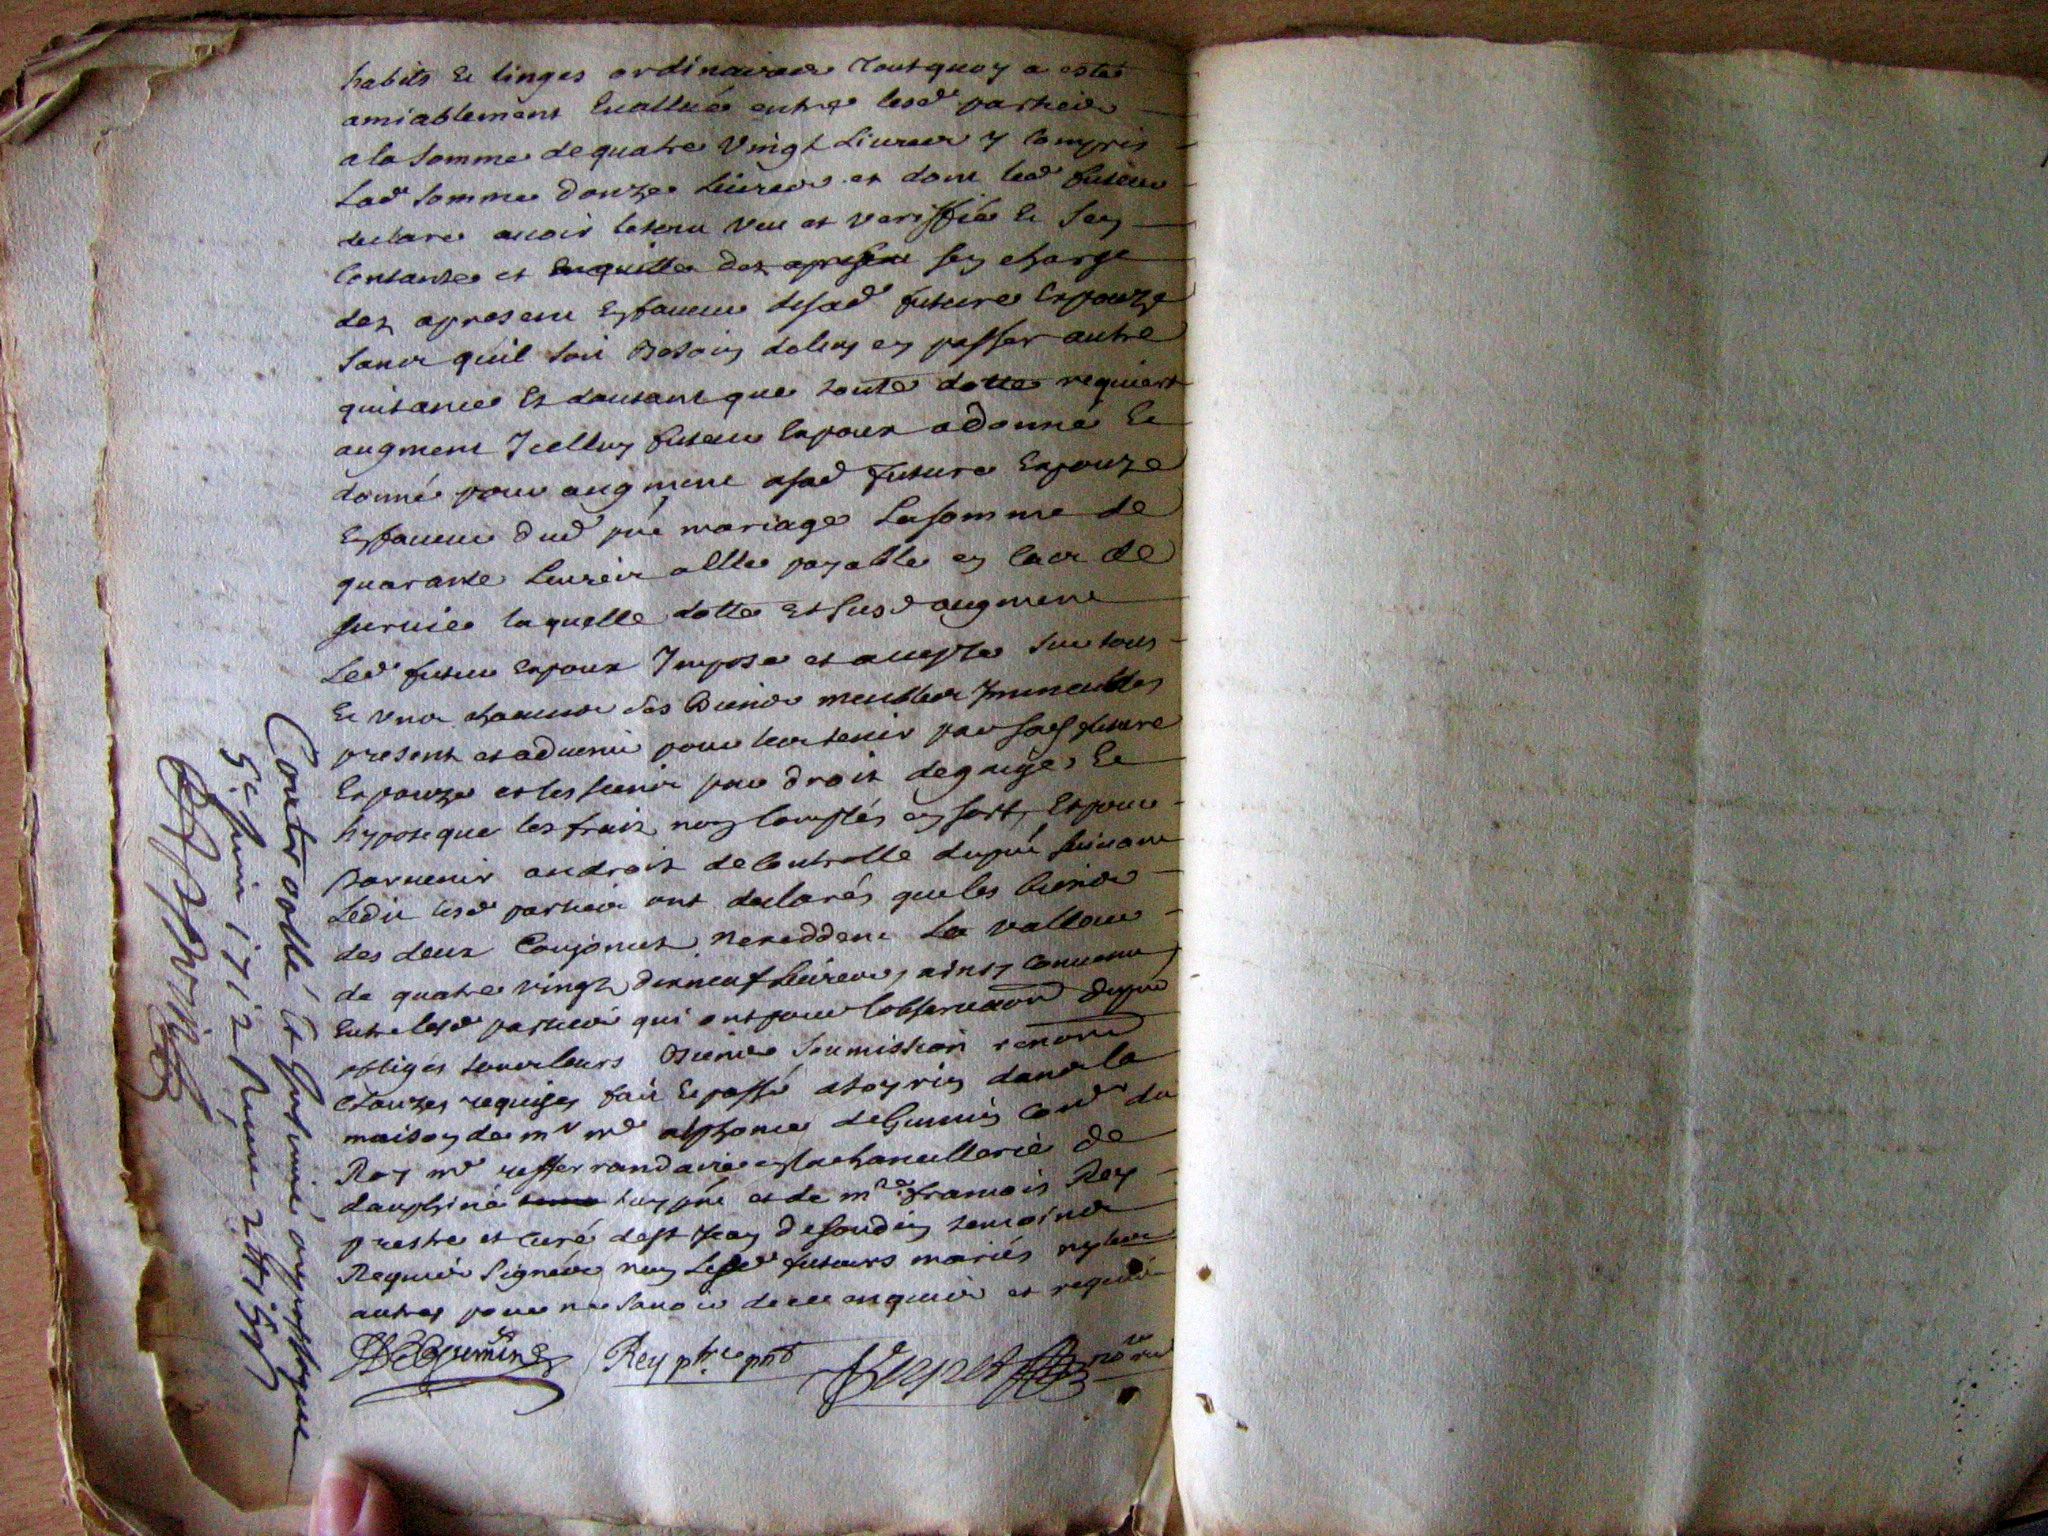 habits et linges ordinaires Tout quoy a esté
amiablement Evalluée entre lesd parties
a la somme de quatre vingt Livres y Compris
Lad somme donze Livres et dont led futeur
declare avoir le tout veu et veriffié et sen
Contante et enquitte dez apresent sen charge
dez apresent En faveur desad future Espouze
sans quil soit Besoin deluy en passer autre
quitance Et dautant que toute dotte requiert
augment Icelluy futeur Espoux a donné Et
donne pour augment asad future Espouze
En faveur dud pnt mariage La somme de
quarante Livres a Elle payable en Cas de
survie laquelle dotte et susd augment
Led futeur Espoux Impose et accepte sur tous
Et Uns chacuns ses Biens meubles Immeubles
present et advenir pour les tenir par sad future
Espouze et les siens par droit de gaige Et
hypoteque les fraix non Comptés en sort, Et pour
parvenir au droit de Controlle du pnt suivant
Ledit lesd parties ont declarés que les Biens
des deux Conjoints n'exeddent La valleur
de quatre vingt dixneuf Livres, ainsy Convenu
Entre lesd parties qui ont pour lobservaon du pnt
obligés tous leurs Biens soumission renonc
Clauzes requises fait Et passé a Toyrin dans la
maison de mr me alphonce deGumin Conr du
Roy me refferrandaire en la chancellerie de
dauphiné luy pnt et de mre francois Rey
prestre et curé de St Jean de Soudin temoins
Requis Signés non Lesd futeurs mariés ny les
autres pour ne savoir de ce enquis et requis
DeGumin Rey ptre pnt Perret nore
Controollé Et Insinué au pnt
5e Juin 1712 Receu